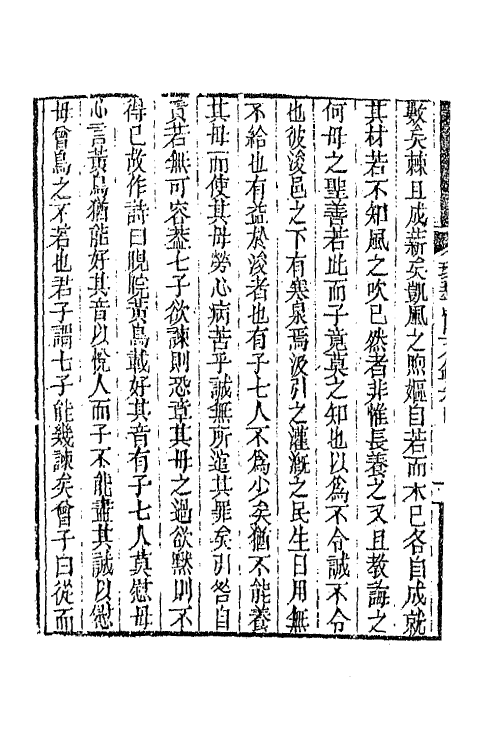 數矣棘且成薪矣凱風之煦嫗自若而木已各自成就
其材若不知風之吹已然者非惟長養之又且教誨之
何母之聖善若此而子竟莫之知也以為不令誠不令
也彼浚邑之下有寒泉焉汲引之灌漑之民生日用無
不給也有益於浚者也有子七人不為少矣猶不能養
其母而使其母勞心病苦乎誠無所逭其罪矣引咎自
責若無可容葢七子欲諫則恐章其母之過欲默則不
得已故作詩曰睍睆黃鳥載好其音有子七人莫慰母
心言黃鳥猶能好其音以悅人而子不能盡其誠以慰
母曾鳥之不若也君子謂七子能幾諫矣曾子曰從而